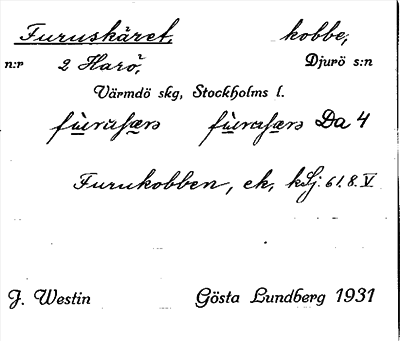 Furuskäret, kobbe,
n:r 2 Harö, Djurö s:n
Värmdö skg, Stockholms l.
Da 4
Furukobben, ek, kSj. 61.8.V.
J. Westin Gösta Lundberg 1931